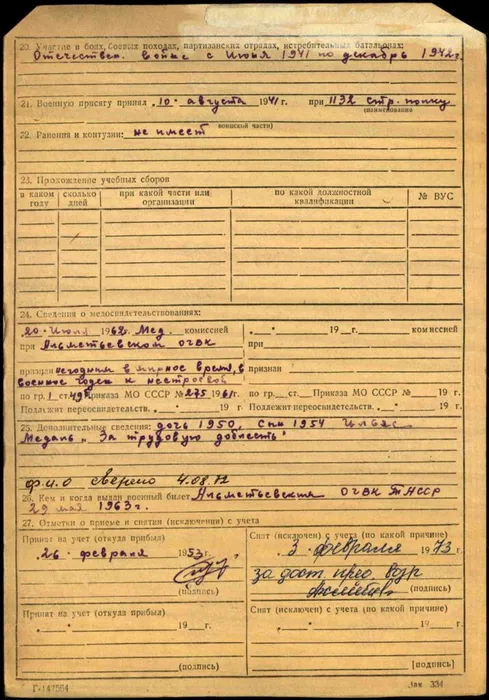 20. Участие в боях, боевых походах, партизанских отрядах, истребительных батальонах:
Отечествен. войне с Июня 1941 по декабрь 1942 г.
21. Военную присягу принял „10" августа 1941 г. при 1132 стр. полку
(наименование
воинской части)
22. Ранения и контузии: не имеет
23. Прохождение учебных сборов
в каком году | сколько дней | при какой части или организации | по какой должностной квалификации | № ВУС
24. Сведения о медосвидетельствованиях:
„20" Июля 1962 Мед. комиссией
при Альметьевском ОГВК
признан негодным в мирное время, в
военное годен к нестроевой
по гр. 1 ст. 49 Приказа МО СССР № 275 1961 г.
Подлежит переосвидетельств. „ " 19 г
„ " 19 г. комиссией
при
признан
по гр. ст. Приказа МО СССР № 19 г.
Подлежит переосвидетельств. „ " 19 г.
25. Дополнительные сведения: дочь 1950, сын 1954
Медаль „За трудовую доблесть"
ф.и.о сверено 4.08.72
26. Кем и когда выдан военный билет Альметьевским ОГВК ТАССР
29 мая 1963 г.
27. Отметки о приеме и снятии (исключении) с учета
Принят на учет (откуда прибыл)
„26" февраля 1953 г.
(подпись)
Снят (исключен) с учета (по какой причине)
„3" февраля 1973
за дост. пред. возр
(подпись)
Принят на учет (откуда прибыл)
„ " 19 г.
(подпись)
Снят (исключен) с учета (по какой причине)
„ " 19 г.
[подпись)
Г-147564
Зак. 334